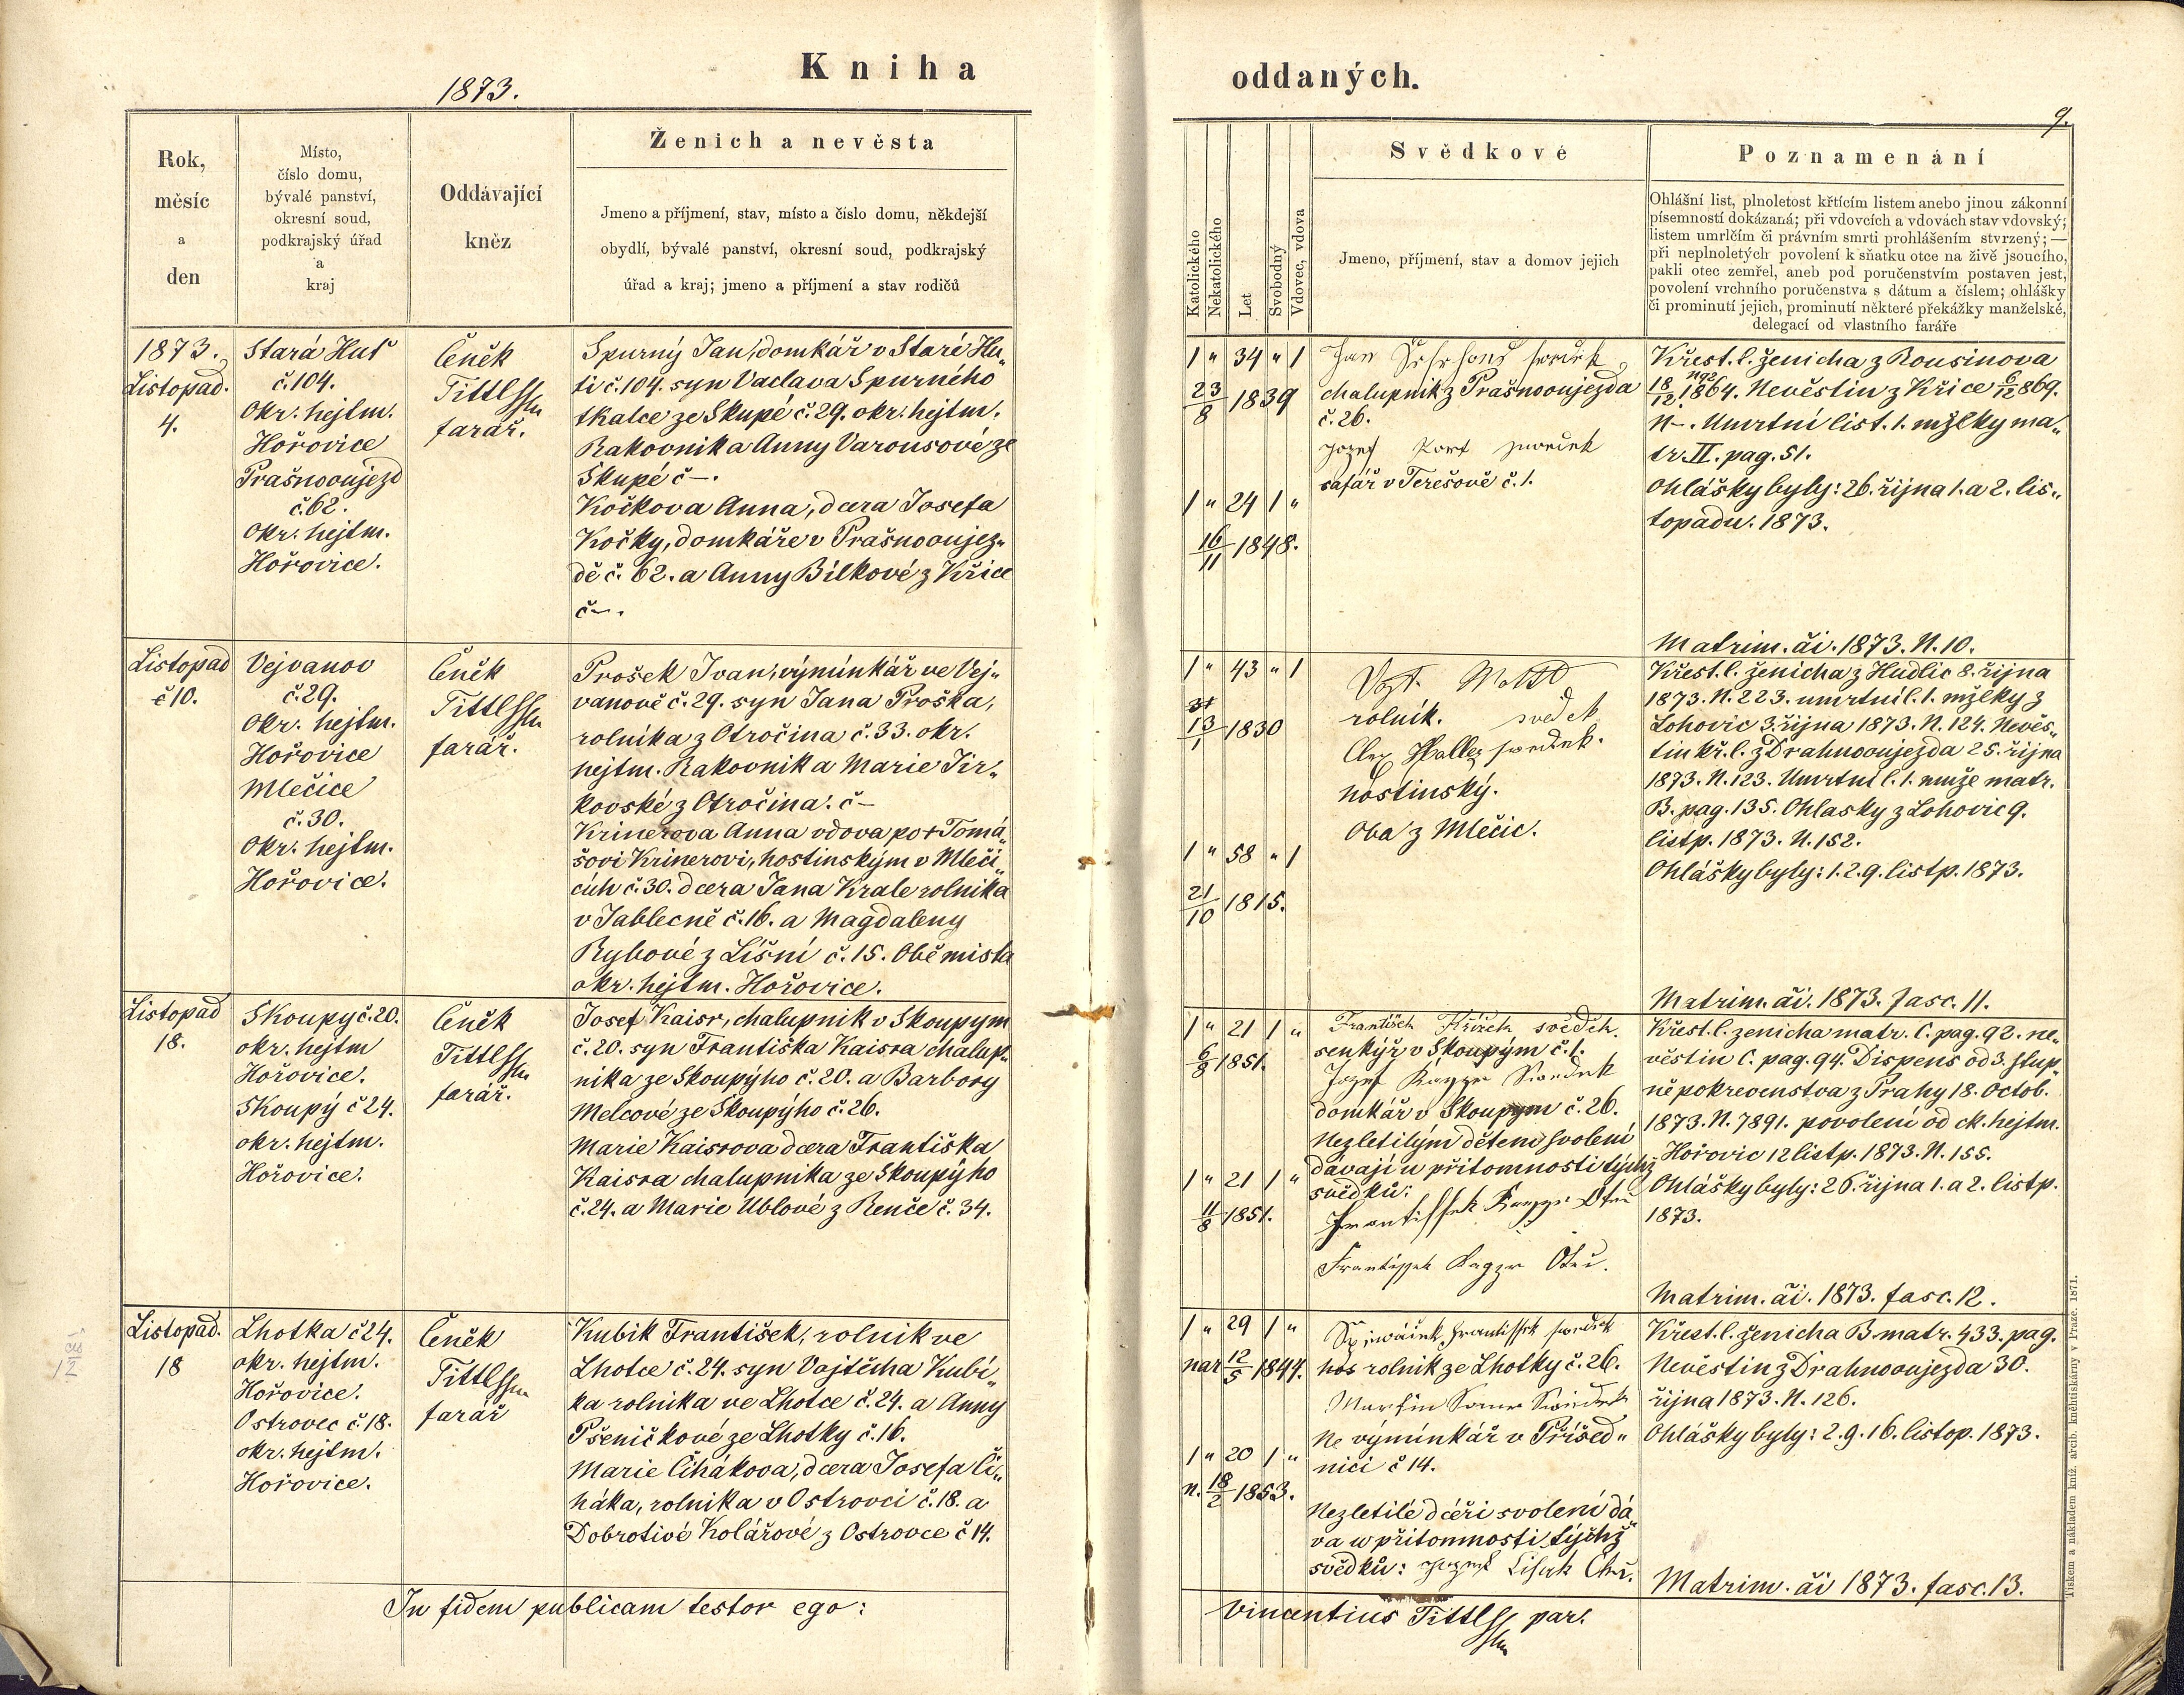 Kniha
1873.
Rok,
měsíc
a
den
Místo,
číslo domu,
bývalé panství,
okresní soud,
podkrajský úřad
a
kraj
Oddávající
kněz
Ženich a nevěsta
Jmeno a příjmení, stav, místo a číslo domu, někdejší
obydlí, bývalé panství, okresní soud, podkrajský
úřad a kraj; jmeno a příjmení a stav rodičů
1873.
Listopad.
4.
Stará Huť
č. 104.
Okr. hejtm.
Hořovice
Prašnooujezd
č. 62.
Okr. hejtm.
Hořovice.
Čeněk
Tittl
farář.
Spurný Jan, domkář v Staré Hu„
ti č. 104. syn Vaclava Spurného
tkalce ze Skupé č. 29. okr. hejtm.
Rakovnik a Anny Varousové ze
Skupé č –.
Kočkova Anna, dcera Josefa
Kočky, domkáře v Prašnooujez„
dě č. 62. a Anny Bílkové z Křice
č –.
Listopad
č 10.
Vejvanov
č. 29.
Okr. hejtm.
Hořovice
Mlečice
č. 30.
Okr. hejtm.
Hořovice.
Čeněk
Tittl
farář.
Prošek Ivan, výmínkář ve Vej„
vanově č. 29. syn Jana Proška,
rolníka z Otročina č. 33. okr.
hejtm. Rakovnik a Marie Jir„
kovské z Otročina. č –
Krinerova Anna vdova po + Tomá„
šovi Krinerovi, hostinským v Mleči„
cích č. 30. dcera Jana Krale rolnika
v Jablecně č. 16. a Magdaleny
Rybové z Líšní č. 15. Obě mista
okr. hejtm. Hořovice.
Listopad
18.
Skoupy č. 20.
okr. hejtm
Hořovice.
Skoupý č 24.
okr. hejtm.
Hořovice.
Čeněk
Tittl
farář.
Josef Kaisr, chalupnik v Skoupym
č. 20. syn Františka Kaisra chalup„
nika ze Skoupýho č. 20. a Barbory
Melcové ze Skoupýho č. 26.
Marie Kaisrova dcera Františka
Kaisra chalupnika ze Skoupýho
č. 24. a Marie Ublové z Renče č. 34.
Listopad.
18
Lhotka č 24.
okr. hejtm.
Hořovice.
Ostrovec č. 18.
okr. hejtm.
Hořovice.
Čeněk
Tittl
farář
Kubik František, rolnik ve
Lhotce č. 24. syn Vojtěcha Kubi„
ka rolnika ve Lhotce č. 24. a Anny
Pšeničkové ze Lhotky č. 16.
Marie Čihákova, dcera Josefa Či„
háka, rolnika v Ostrovci č. 18. a
Dobrotivé Kolářové z Ostrovce č 14.
In fidem publicam testor ego:
oddaných.
9.
Katolického
Nekatolického
Let
Svobodný
Vdovec, vdova
Svědkové
Jmeno, příjmení, stav a domov jejich
Poznamenání
Ohlášní list, plnoletost křtícím listem anebo jinou zákonní
písemností dokázaná; při vdovcích a vdovách stav vdovský;
listem umrlčím či právním smrti prohlášením stvrzený; —
při neplnoletých povolení k sňatku otce na živě jsoucího,
pakli otec zemřel, aneb pod poručenstvím postaven jest,
povolení vrchního poručenstva s dátum a číslem; ohlášky
či prominutí jejich, prominutí některé překážky manželské,
delegací od vlastního faráře
1 „ 34 „ 1
23/8 1839
1 „ 24 1 „
16/11 1848.
Jan
chalupník z Prašnooujezda
č. 26.
Jozef
šafář v Terešově č. 1.
Křest. l. ženicha z Rousinova
18/12 1864. Nevěstin z Křice 6/12 869.
N –. Umrtní list. 1. mžlky ma„
tr. II. pag. 51.
Ohlášky byly: 26. října 1. a 2. lis„
topadu. 1873.
Matrim. či. 1873. N. 10.
1 „ 43 „ 1
13/1 1830
1 „ 58 „ 1
21/10 1815.
rolník. svedek
hostinský.
Oba z Mlečic.
Křest. l. ženicha z Hudlic 8. října
1873. N. 223. umrtní l. 1. mžlky z
Lohovic 3. října 1873. N. 124. Nevěs„
tin kř. l. z Drahnooujezda 25. října
1873. N. 123. Umrtní l. 1. muže matr.
B. pag. 135. Ohlasky z Lohovic 9.
listp. 1873. N. 152.
Ohlášky byly: 1. 2. 9. listp. 1873.
Matrim. či. 1873. fasc. 11.
1 „ 21 1 „
6/8 1851.
1 „ 21 1 „
11/8 1851.
František Křížek svědek.
senkýř v Skoupým č. 1.
Jozef
domkář v Skoupym č. 26.
Nezletilým dětem svolení
dávají u přitomnosti týchž
svědků:
Frantissek
Frantissek Otec.
Křest. l. zenicha matr. C. pag. 92. ne„
věstin C. pag. 94. Dispens od 3. stup„
ně pokrevenstva z Prahy 18. Octob.
1873. N. 7891. povolení od ck. hejtm.
Hořovic 12 listp. 1873. N. 155.
Ohlášky byly: 26. října 1. a 2. listp.
1873.
Matrim. či. 1873. fasc. 12.
1 „ 29 1 „
nar 12/5 1844.
1 „ 20 1 „
n. 18/2 1853.
Frantissek
rolník ze Lhotky č. 26.
Martin
výmínkář v Příšed„
nici č 14.
Nezletilé dceři svolení dá„
va u přitomnosti týchž
svědků:
Křest. l. ženicha B matr. 433. pag.
Nevěstin z Drahnooujezda 30.
října 1873. N. 126.
Ohlášky byly: 2. 9. 16. listop. 1873.
Matrim. či 1873. fasc. 13.
Vincentius Tittl par.
Tiskem a nákladem kníž. arcib. knihtiskárny v Praze. 1871.